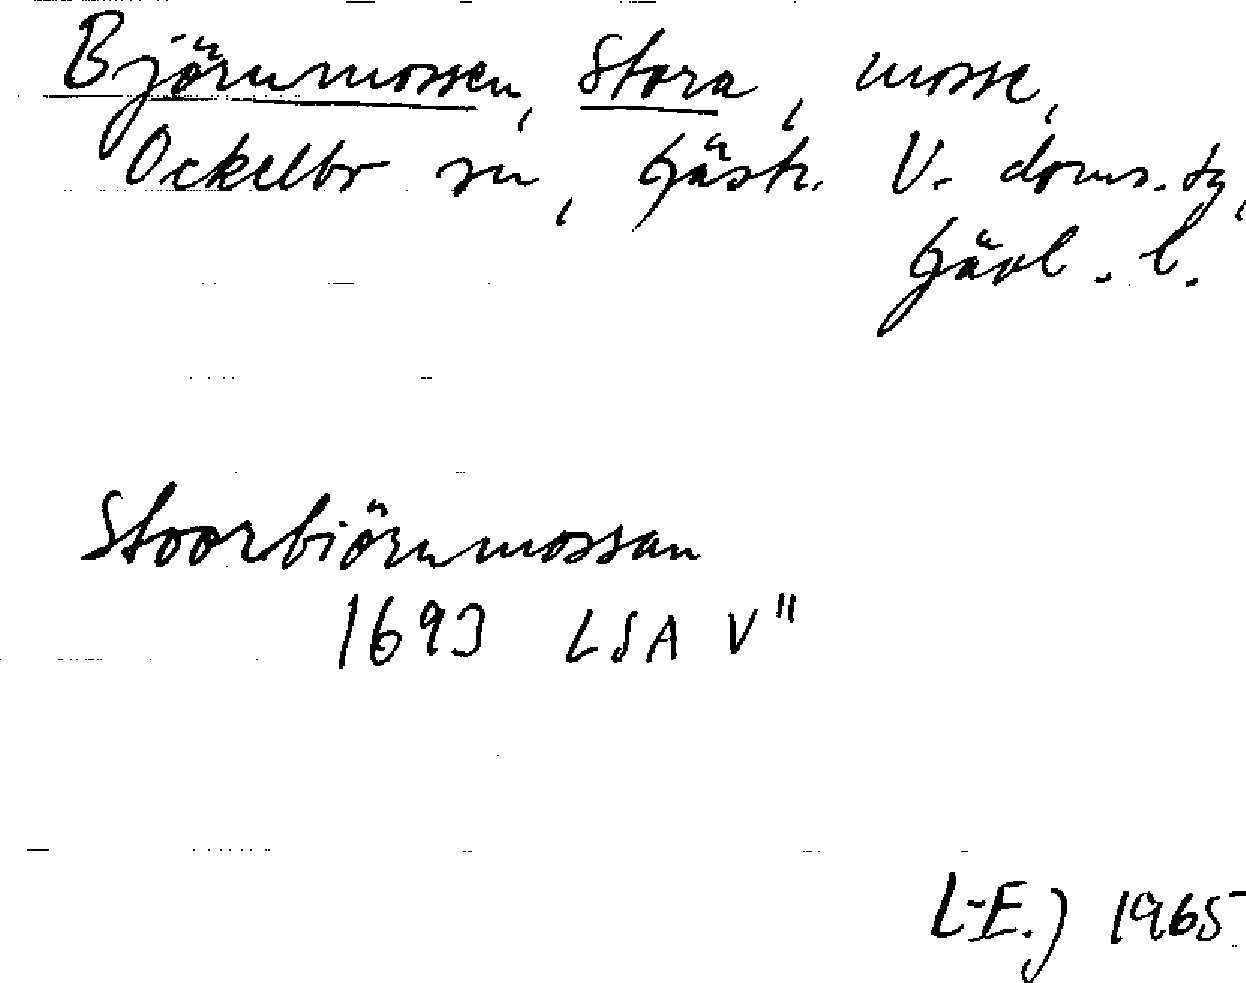 Björnmossen, Stora, mosse,
Ockelbo sn, Gästr. V. doms. tg,
Gävl. l.
Stoorbiörnmossan
1693 LSA V"
L-E.J 1965